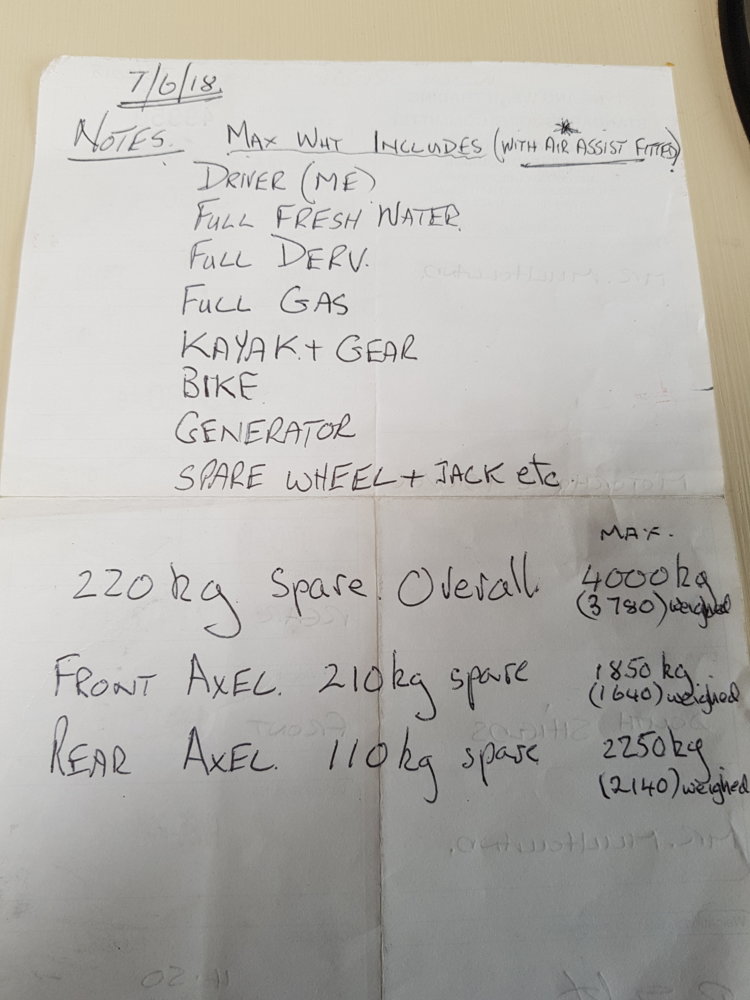 7/6/18.
NOTES. MAX WHT INCLUDES (WITH AIR ASSIST FITTED)
*
DRIVER (ME)
FULL FRESH WATER.
FULL DERV.
FULL GAS
KAYAK + GEAR
BIKE
GENERATOR
SPARE WHEEL + JACK etc.
MAX.
220kg Spare. Overall. 4000kg
(3780) weighed
FRONT AXEL. 210kg spare 1850 kg
(1640) weighed
REAR AXEL. 110kg spare 2250kg
(2140) weighed